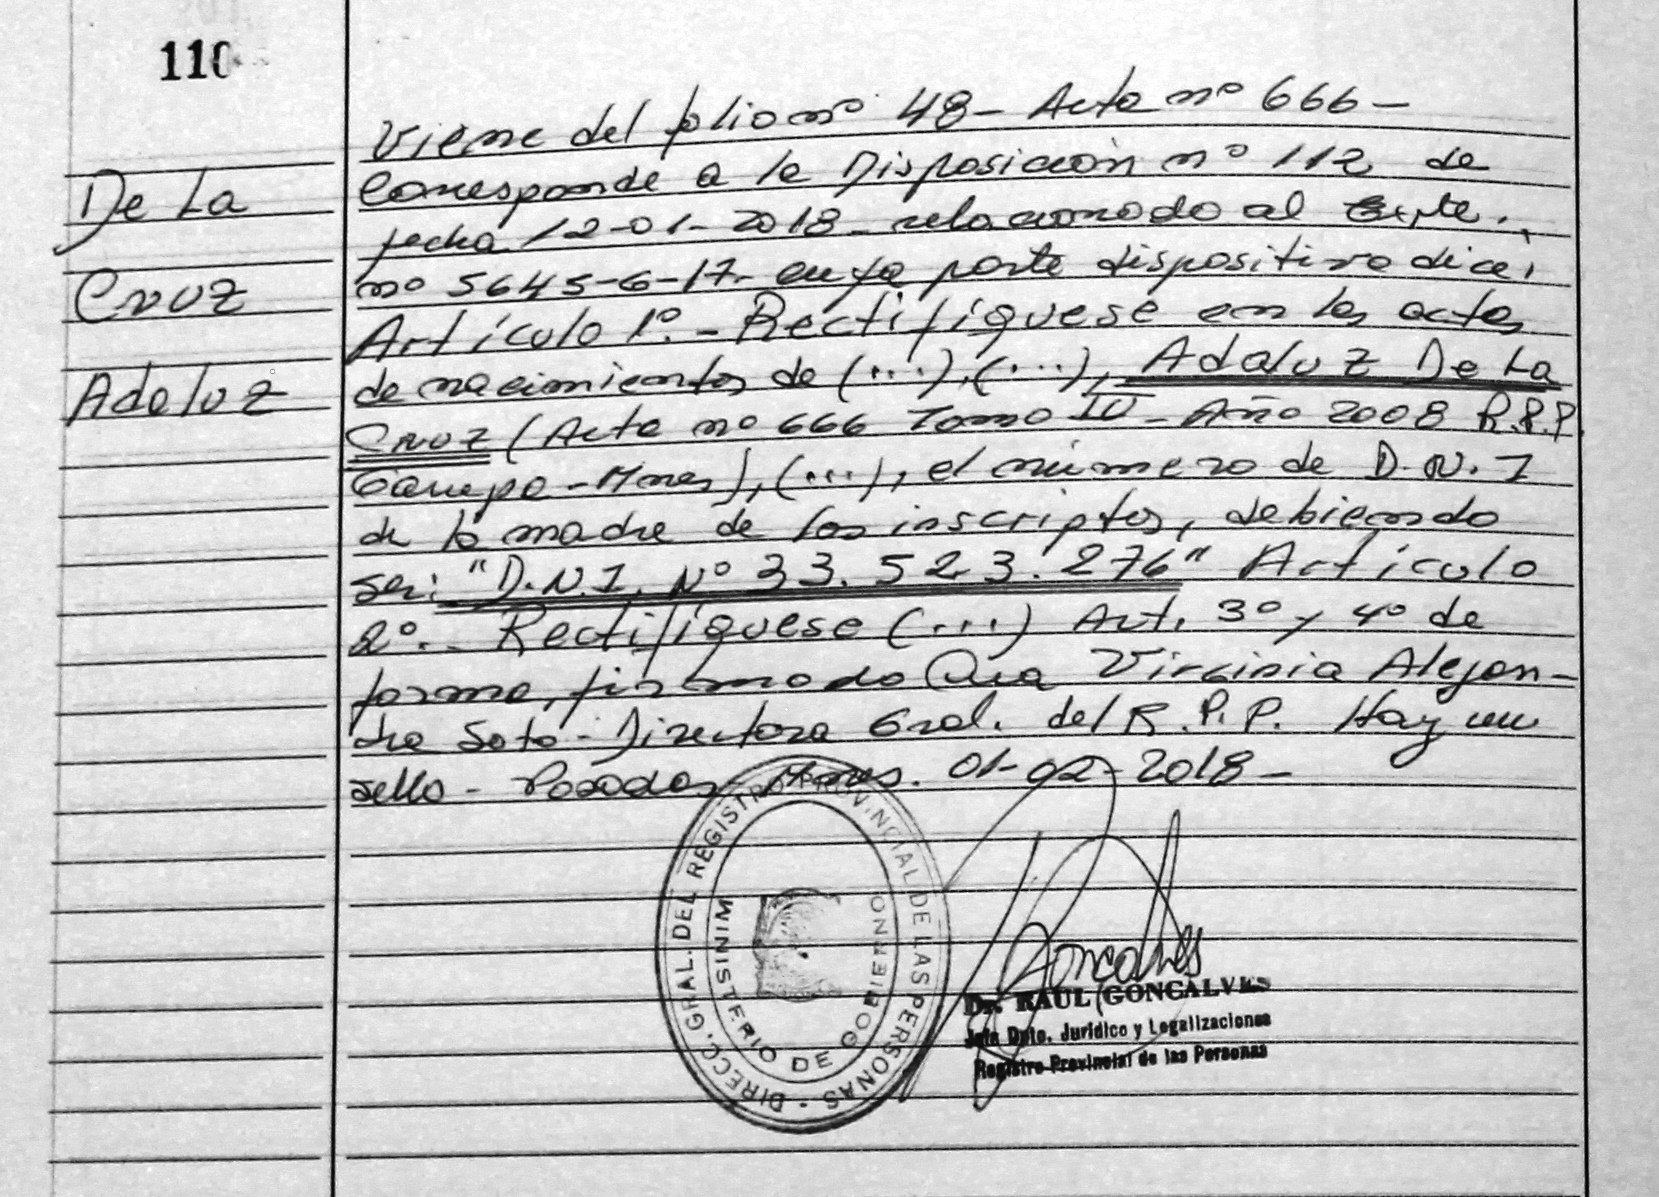 110
De La
Cruz
Adaluz
Viene del folio nº 48 - Acta nº 666 -
Corresponde a la Disposición nº 112 de
fecha 12-01-2018 - relacionado al Expte.
nº 5645-6-17- cuya parte dispositiva dice:
Artículo 1º.- Rectifíquese en las actas
de nacimientos de (...), (...), Adaluz De La
Cruz (Acta nº 666 Tomo IV - Año 2008 R.P.P.
Garupa - Mnes), (...), el número de D.N.I
de la madre de los inscriptos, debiendo
ser: "D.N.I. Nº 33.523.276" Artículo
2º.- Rectifíquese (...) Art. 3º y 4º de
forma, firmado Dra Virginia Alejan-
dra Soto - Directora Gral. del R.P.P. Hay un
sello - Posadas, Mnes. 01-02-2018 -
DIRECC. GRAL. DEL REGISTRO PROVINCIAL DE LAS PERSONAS -
MINISTERIO DE GOBIERNO
Goncalves
Dr. RAUL GONCALVES
Jefe Dpto. Jurídico y Legalizaciones
Registro Provincial de las Personas